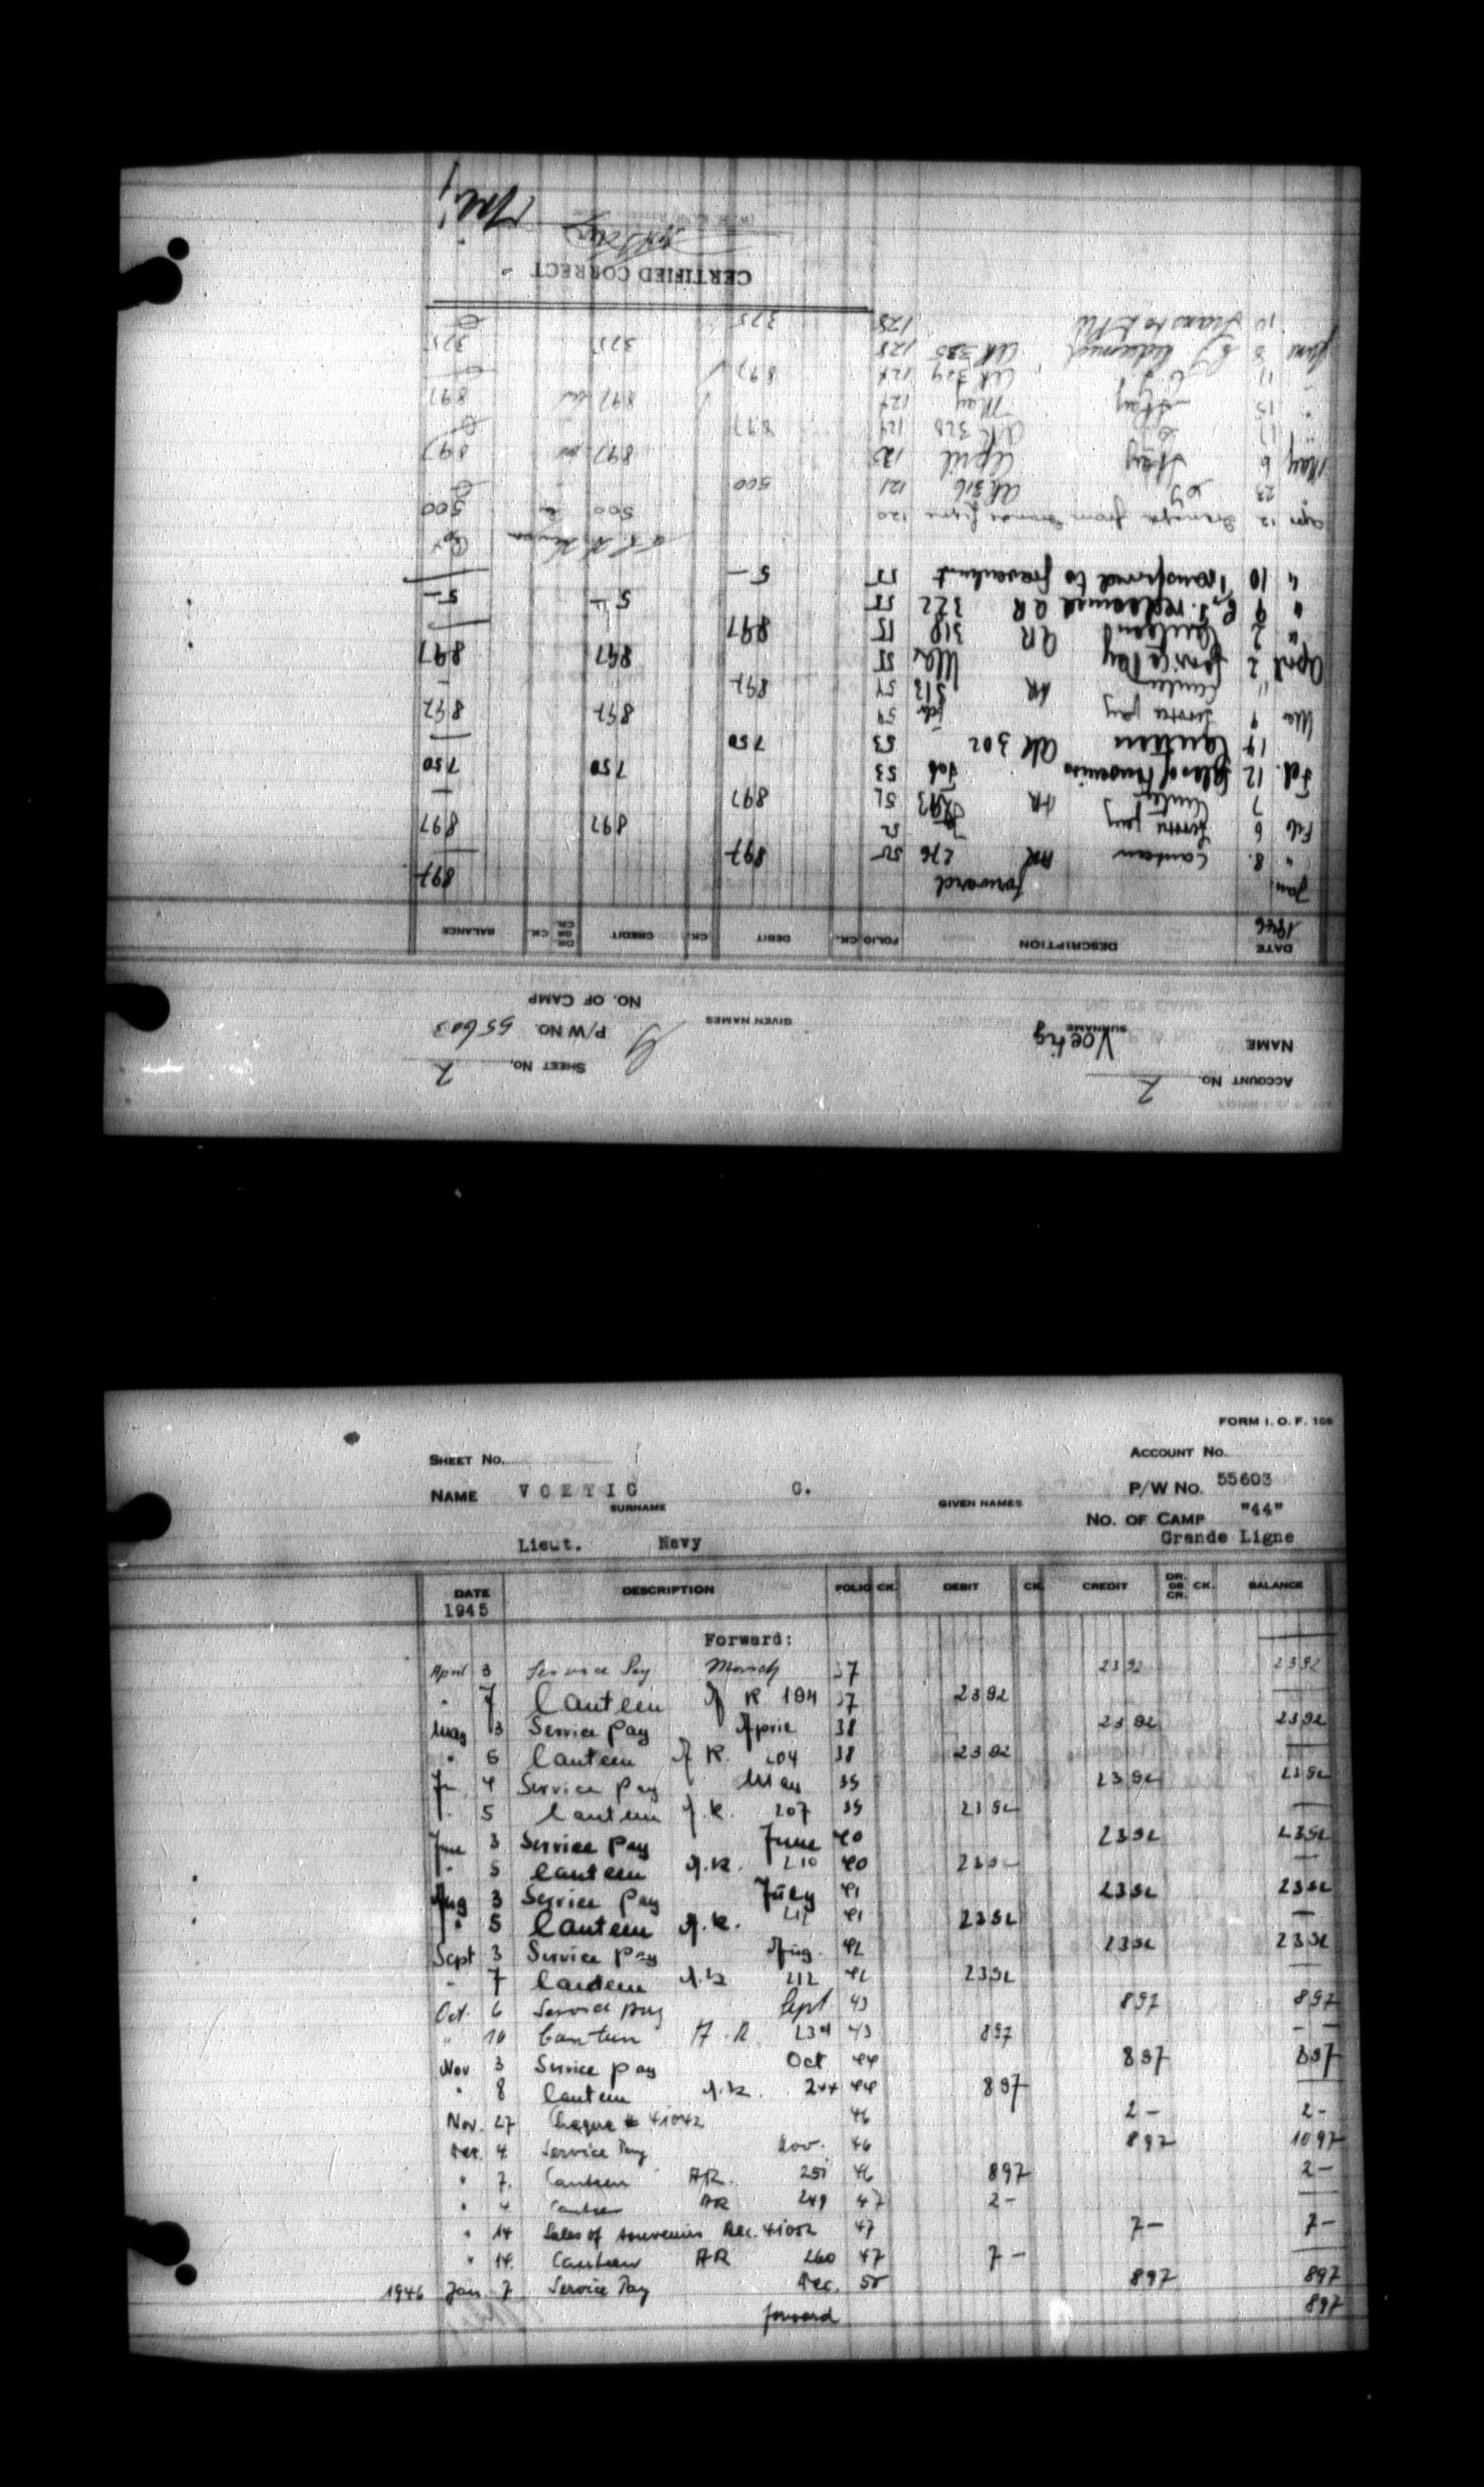 ACCOUNT No. 2 SHEET No. 2
NAME Voetig G P/W No. 55603
SURNAME GIVEN NAMES NO. OF CAMP
DATE DESCRIPTION FOLIO CK. DEBIT CK. CREDIT DR. OR CR. CK. BALANCE
1946
Jan. forward 897
" 8. Canteen AR 276 50 897 —
Feb 6 Service pay 52 897 897
7 Canteen AR 293 52 897 —
Feb. 12 Sales of Souvenirs Feb 53 750 750
14 Canteen AR 302 53 750 —
Mar 4 Service pay Feb 54 897 897
" Canteen AR 313 54 897 —
April 2 Service Pay Mar 55 897 897
" 2 Canteen AR 318 55 897
" 9 redeemed AR 322 55 5— 5—
" 10 Transferred to 55 5—
Apr 12 Transfer from Grande Ligne 120 500 500
23 AR 316 121 500
May 6 Pay April 897 897
17 AR 328 124 897
" 15 Pay May 124 897 897
" 17 AR 329 124 897
June 6 Redeemed AR 335 128 375 375
10 Trans to 128 375
CERTIFIED CORRECT
FORM I. O. F. 106
SHEET No. ACCOUNT No.
NAME VOETIG G. P/W No. 55603
SURNAME GIVEN NAMES NO. OF CAMP "44"
Lieut. Navy Grande Ligne
DATE DESCRIPTION FOLIO CK. DEBIT CK. CREDIT DR. OR CR. CK. BALANCE
1945
Forward:
April 3 Service Pay March 37 2392 2392
" 7 Canteen A R 194 37 2392
May 3 Service pay April 38 2392 2392
" 5 Canteen A R. 204 38 2392 —
4 Service pay May 39 2392 2392
" 5 Canteen A.R. 207 39 2392 —
June 3 Service pay June 40 2392 2392
" 5 Canteen A.R. 210 40 2392 —
Aug 3 Service pay July 41 2392 2392
" 5 Canteen A.R. 41 2392 —
Sept 3 Service pay Aug. 42 2392 2392
" 7 Canteen A.R 42 2392 —
Oct. 6 Service pay Sept 43 897 897
" 10 Canteen A.R 234 43 897 —
Nov 3 Service pay Oct 44 897 897
" 8 Canteen A.R. 244 44 897
Nov. 27 Cheque # 41042 46 2— 2—
Dec. 4. Service Pay Nov. 46 897 1097
" 7. Canteen AR. 251 46 897 2—
" 4 Canteen AR 249 47 2— —
" 14 Sales of souvenirs Rec. 41052 47 7— 7—
" 14. Canteen AR 260 47 7— —
1946 Jan. 7 Service Pay Dec. 50 897 897
forward 897